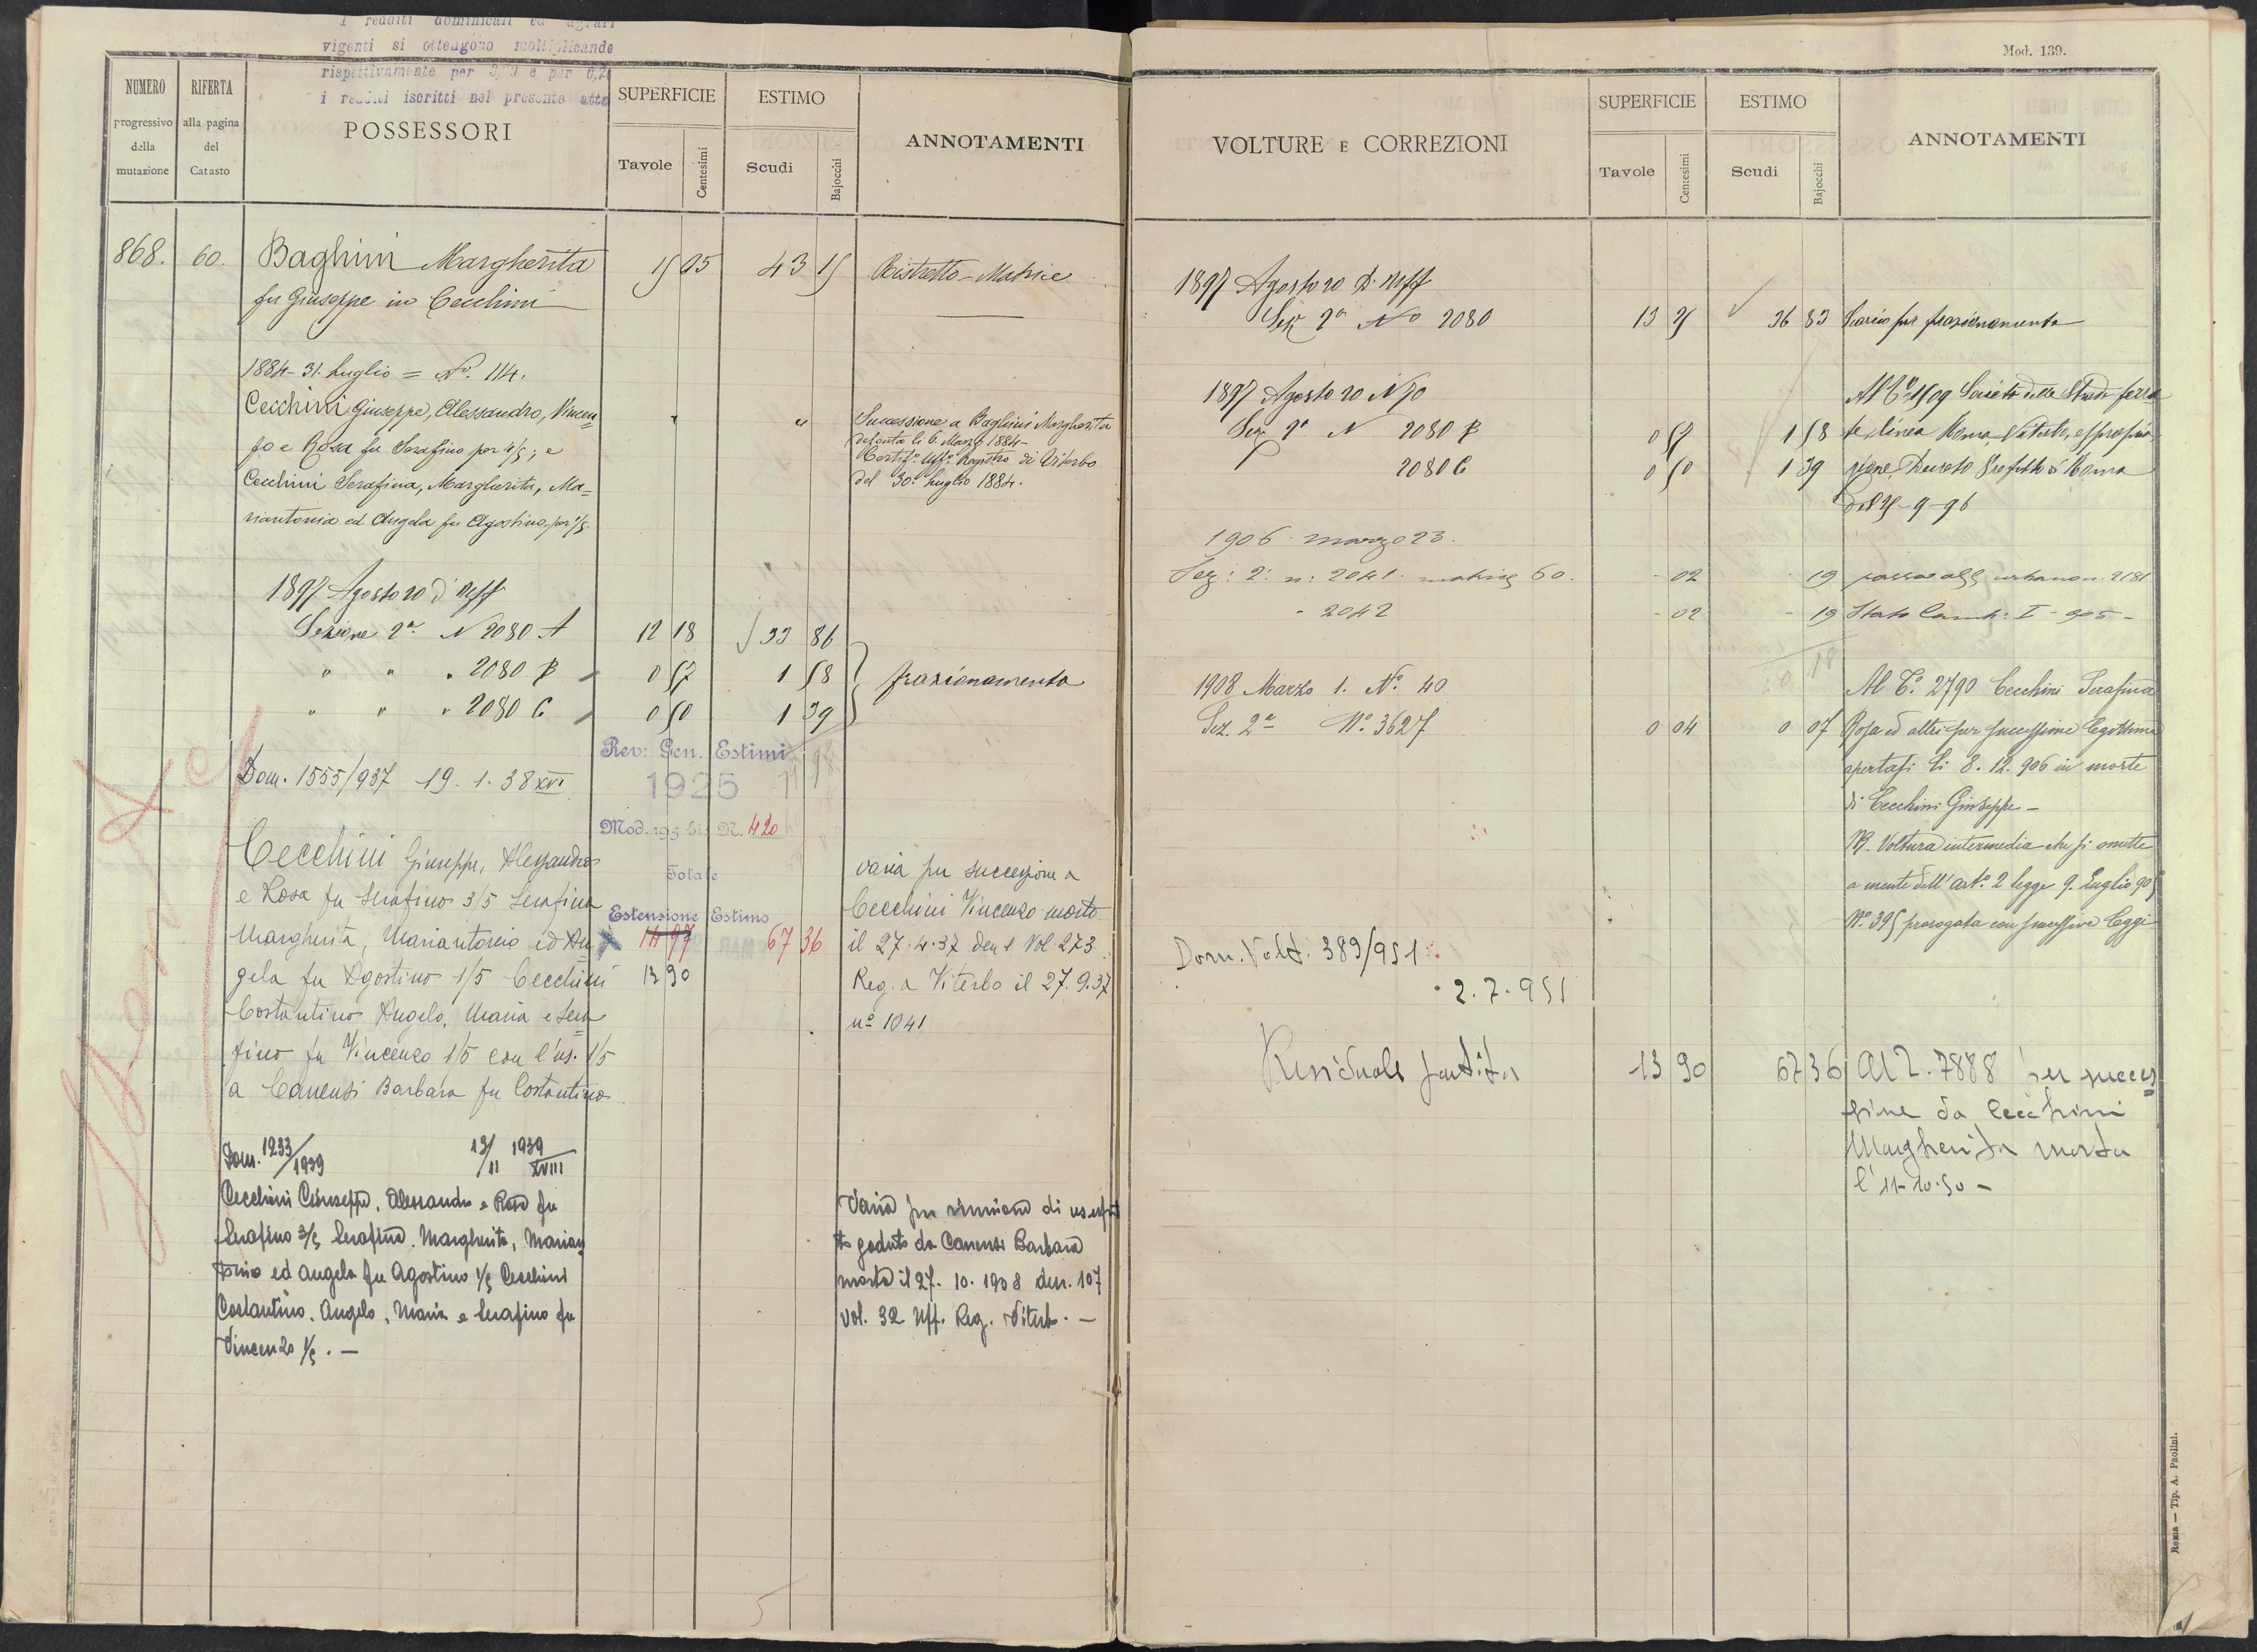 I redditi dominicali ed agrari
vigenti si ottengono moltiplicando
rispettivamente per
i redditi iscritti nel presente atto
NUMERO
progressivo
della
mutazione
RIFERTA
alla pagina
del
Catasto
POSSESSORI
SUPERFICIE
Tavole
Centesimi
ESTIMO
Scudi
Bajocchi
ANNOTAMENTI
868. 60. Baghini Margherita 15 05 43 15 Ristretto-Matrice
fu Giuseppe in Cecchini
1884- 31. Luglio = No. 114.
Cecchini Giuseppe, Alessandro, Vincen= " " Successione a Baghini Margherita
zo e Rosa fu Serafino per 4/5; e defonta li 6. Marzo 1884-
Cecchini Serafina, Margherita, Ma= Certifo. Uffo. Registro di Viterbo
riantonia ed Angela fu Agostino per 1/5. del 30. Luglio 1884.
1897 Agosto 20 d'Uff
Sezione 2a. N 2080 A 12 18 33 86
" " " 2080 B 0 57 1 58 frazionamento
" " " 2080 C 0 50 1 39
Rev: Gen. Estimi
1925
Dom. 1555/937 19. 1. 38 XVI
Mod. 195 bis N. 420
Cecchini Giuseppe, Alessandro
e Rosa fu Serafino 3/5 Serafina
Margherita, Mariantonia ed An
gela fu Agostino 1/5 Cecchini
Costantino Angelo, Maria e Sera
fino fu Vincenzo 1/5 con l'us. 1/5
a Canensi Barbara fu Costantino
Totale
Estensione Estimo
14 97 67 36
13 90
varia per successione a
Cecchini Vincenzo morto
il 27.4.37 den 1 Vol 273
Reg. a Viterbo il 27.9.37
no 1041
Dom. 1233/1939 13/11 1939 XVIII
Cecchini Giuseppe, Alessandro e Rosa fu
Serafino 3/5 Serafina, Margherita, Marian
tonia ed Angela fu Agostino 1/5 Cecchini
Costantino, Angelo, Maria e Serafino fu
Vincenzo 1/5. —
Varia per riunione di usufrut
to goduto da Canensi Barbara
morta il 27. 10. 1938 den. 107
vol. 32 Uff. Reg. Viterb. —
5
Mod. 139.
VOLTURE E CORREZIONI
SUPERFICIE
Tavole
Centesimi
ESTIMO
Scudi
Bajocchi
ANNOTAMENTI
1897 Agosto 20 D. Uff
Sez 2a No 2080 13 25 36 83 Scarico per frazionamento
1897 Agosto 20 N 70
Sez 2a N 2080 B 0 57 1 58
2080 C 0 50 1 39
Al Co 1509 Società delle Strade ferra
te, linea Roma, Viterbo, espropria
zione, Decreto Prefetto di Roma
del 25-9-96
1906 marzo 23.
Sez: 2: n: 2041. matrice 60. - 02 19 passa all' urbano n. 2181
- 2042 - 02 - 19 Stato Camb: I - 905 -
1908 Marzo 1. No. 40
Sez. 2a No. 3627 0 04 0 07
Al Co. 2790 Cecchini Serafina
Rosa ed altri per successione legittima
apertasi li 8. 12. 906 in morte
di Cecchini Giuseppe -
NB. Voltura intermedia che si omette
a mente dell'arto. 2 legge 9. Luglio 905
No. 395 prorogata con successive leggi
Dom. Volt. 389/951
2.7.951
Residuale partita 13 90 67 36 Al C. 7888 per succes
sione da Cecchini
Margherita morta
l'11-10-50 -
Roma — Tip. A. Paolini.